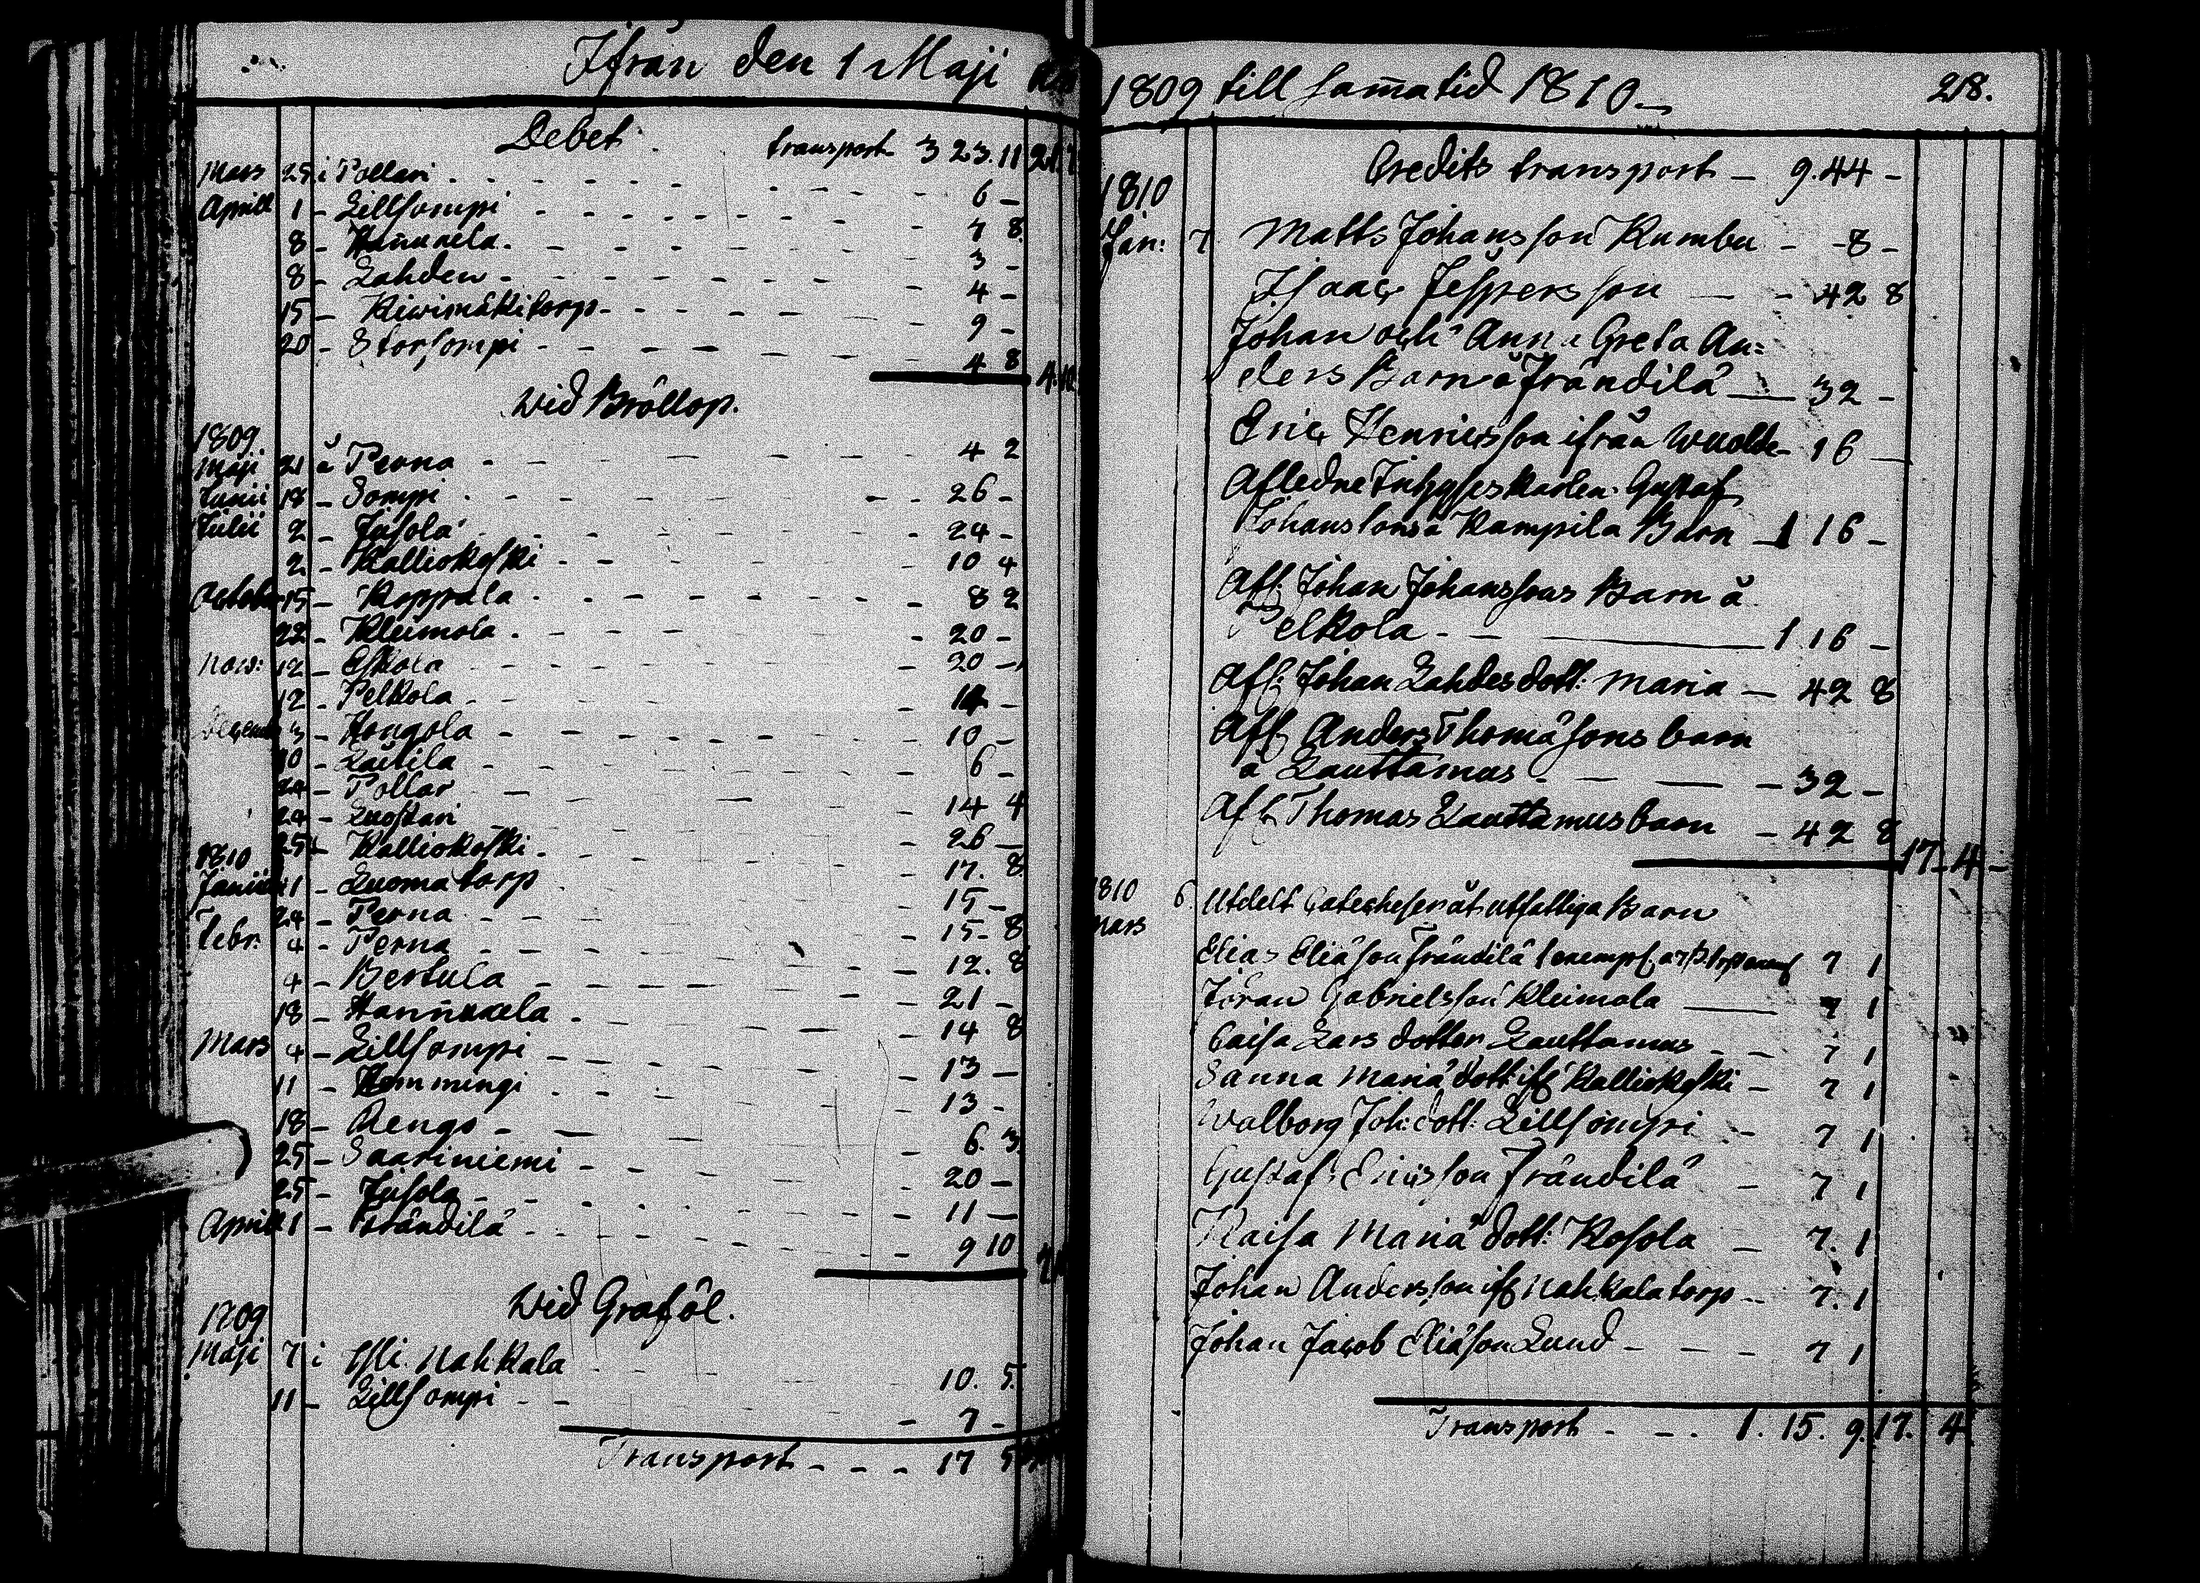 Ifrån den 1 Maji
Debet. transport 3 23. 11
Mars 25 i Pollari - 6 -
Aprill 1 - Lillsompi - 7 8.
8 - Hannukela - 3 -
8 - Lahden - 4 -
15 - Kiwimäki torp - 9 -
20 - Storsompi - 4 8
Wid Bröllop.
1809
Maji 21 å Perna - 4 2
Junii 18 - Sompi - 26 -
Julii 2 - Jusola - 24 -
2 - Kalliokoski - 10 4
October 15 - Koppala - 8 2
22 - Kleimola - 20 -
Now: 12 - Eskola - 20 -
12 - Pelkola - 14 -
Decemb 3 - Hongola - 10 -
10 - Laitila - 6 -
24 - Pollar - 14 4
24 - Luostari - 26 -
25 - Kalliokoski - 17. 8
1810
Janii 1 - Luoma torp - 15 -
24 - Perna - 15 - 8
Febr: 4 - Perna - 12. 8
4 - Bertula - 21 -
18 - Hannukela - 14 8
Mars 4 - Lillsompi - 13 -
11 - Hemmingi - 13 -
18 - Rengo - 6. 3
25 - Saariniemi - 20 -
25 - Jusola - 11 -
Aprill 1 - Frändilä - 9 10
Wid Graföl.
1709
Maji 7 i Yli Nahkala - 10. 5.
11 - Lillsompi - 7 -
Transport - - - 17 5
1809 till samma tid 1810 - 218.
Credits transport - 9. 44 -
1810
Jan: 7 Matts Johansson Rumbu - 8 -
Isaac Jeppersson - 42 8
Johan och Anna Greta An=
ders Barn å Frändilä - 32 -
Eric Henricsson ifrån Wuolle - 16 -
Afledne Gustaf
Johanssons å Kampila Barn - 1 16 -
Afl: Johan Johanssons Barn å
Pelkola - 1 16 -
Afl: Johan Lahdes dott: Maria - 42 8
Afl: Anders Thomäsons barn
å Lauttamus - 32 -
Afl: Thomas Lauttamus barn - 42 8
17 - 4 -
1810
Mars 6 Utdelt Catecheser åt utfattiga Barn
Elias Eliäson Frändilä 1 exempl. 7 1
Jöran Gabrielsson Kleimola - 7 1
Caisa Lars dotter Lauttamus - 7 1
Sanna Mariä dott: ifr Kalliokoski - 7 1
Walborg Joh: dott: Lillsompi - 7 1
Gustaf Ericsson Frändilä - 7 1
Kaisa Mariä dott: Kosola - 7. 1
Johan Andersson ifr Nahkala torp - 7. 1
Johan Jacob Eliäson Lund - 7 1
Transport - - . 1. 15. 9. 17. 4